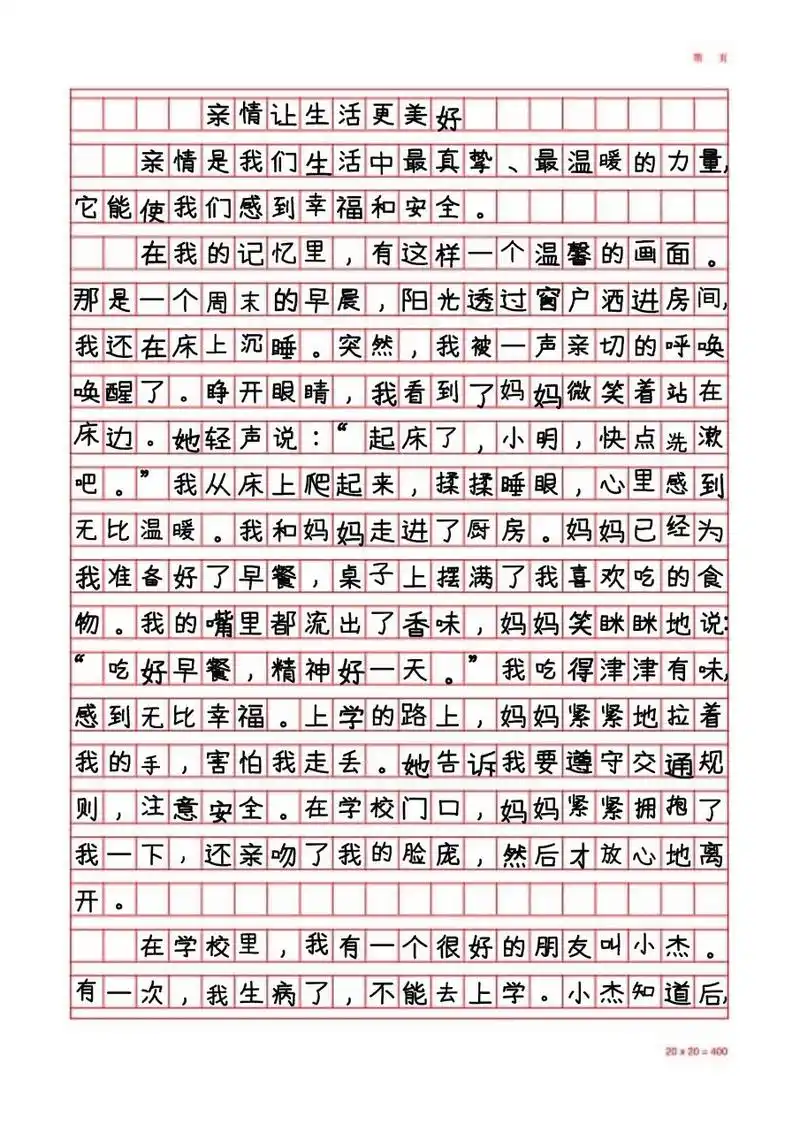 第 页
亲情让生活更美好
亲情是我们生活中最真挚、最温暖的力量,
它能使我们感到幸福和安全。
在我的记忆里，有这样一个温馨的画面。
那是一个周末的早晨，阳光透过窗户洒进房间,
我还在床上沉睡。突然，我被一声亲切的呼唤
唤醒了。睁开眼睛，我看到了妈妈微笑着站在
床边。她轻声说：“起床了，小明，快点洗漱
吧。”我从床上爬起来，揉揉睡眼，心里感到
无比温暖。我和妈妈走进了厨房。妈妈已经为
我准备好了早餐，桌子上摆满了我喜欢吃的食
物。我的嘴里都流出了香味，妈妈笑眯眯地说:
“吃好早餐，精神好一天。”我吃得津津有味,
感到无比幸福。上学的路上，妈妈紧紧地拉着
我的手，害怕我走丢。她告诉我要遵守交通规
则，注意安全。在学校门口，妈妈紧紧拥抱了
我一下，还亲吻了我的脸庞，然后才放心地离
开。
在学校里，我有一个很好的朋友叫小杰。
有一次，我生病了，不能去上学。小杰知道后,
20 x 20 = 400